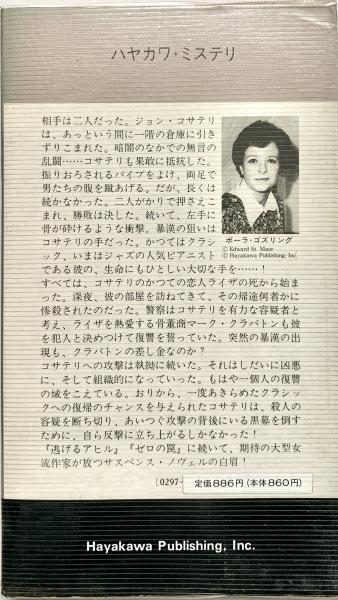 ハヤカワ・ミステリ
相手は二人だった。ジョン・コサテリ
は、あっという間に一階の倉庫に引き
ずりこまれた。暗闇のなかでの無言の
乱闘……コサテリも果敢に抵抗した。
振りおろされるパイプをよけ、両足で
男たちの腹を蹴あげる。だが、長くは
続かなかった。二人がかりで押さえこ
まれ、勝敗は決した。続いて、左手に
骨が砕けるような衝撃。暴漢の狙いは
コサテリの手だった。かつてはクラシ
ック、いまはジャズの人気ピアニスト
である彼の、生命にもひとしい大切な手を……！
すべては、コサテリのかつての恋人ライザの死から始ま
った。深夜、彼の部屋を訪ねてきて、その帰途何者かに
惨殺されたのだった。警察はコサテリを有力な容疑者と
考え、ライザを熱愛する骨董商マーク・クラバトンも彼
を犯人と決めつけて復讐を誓っていた。突然の暴漢の出
現も、クラバトンの差し金なのか？
コサテリへの攻撃は執拗に続いた。それはしだいに凶悪
に、そして組織的になっていった。もはや一個人の復讐
の域をこえている。おりから、一度あきらめたクラシッ
クへの復帰のチャンスを与えられたコサテリは、殺人の
容疑を断ち切り、あいつぐ攻撃の背後にいる黒幕を倒す
ために、自ら反撃に立ち上がるしかなかった！
『逃げるアヒル』『ゼロの罠』に続いて、期待の大型女
流作家が放つサスペンス・ノヴェルの白眉！
ポーラ・ゴズリング
© Edward St. Maur
© Hayakawa Publishing, Inc.
〔0297-
定価886円(本体860円)
Hayakawa Publishing, Inc.